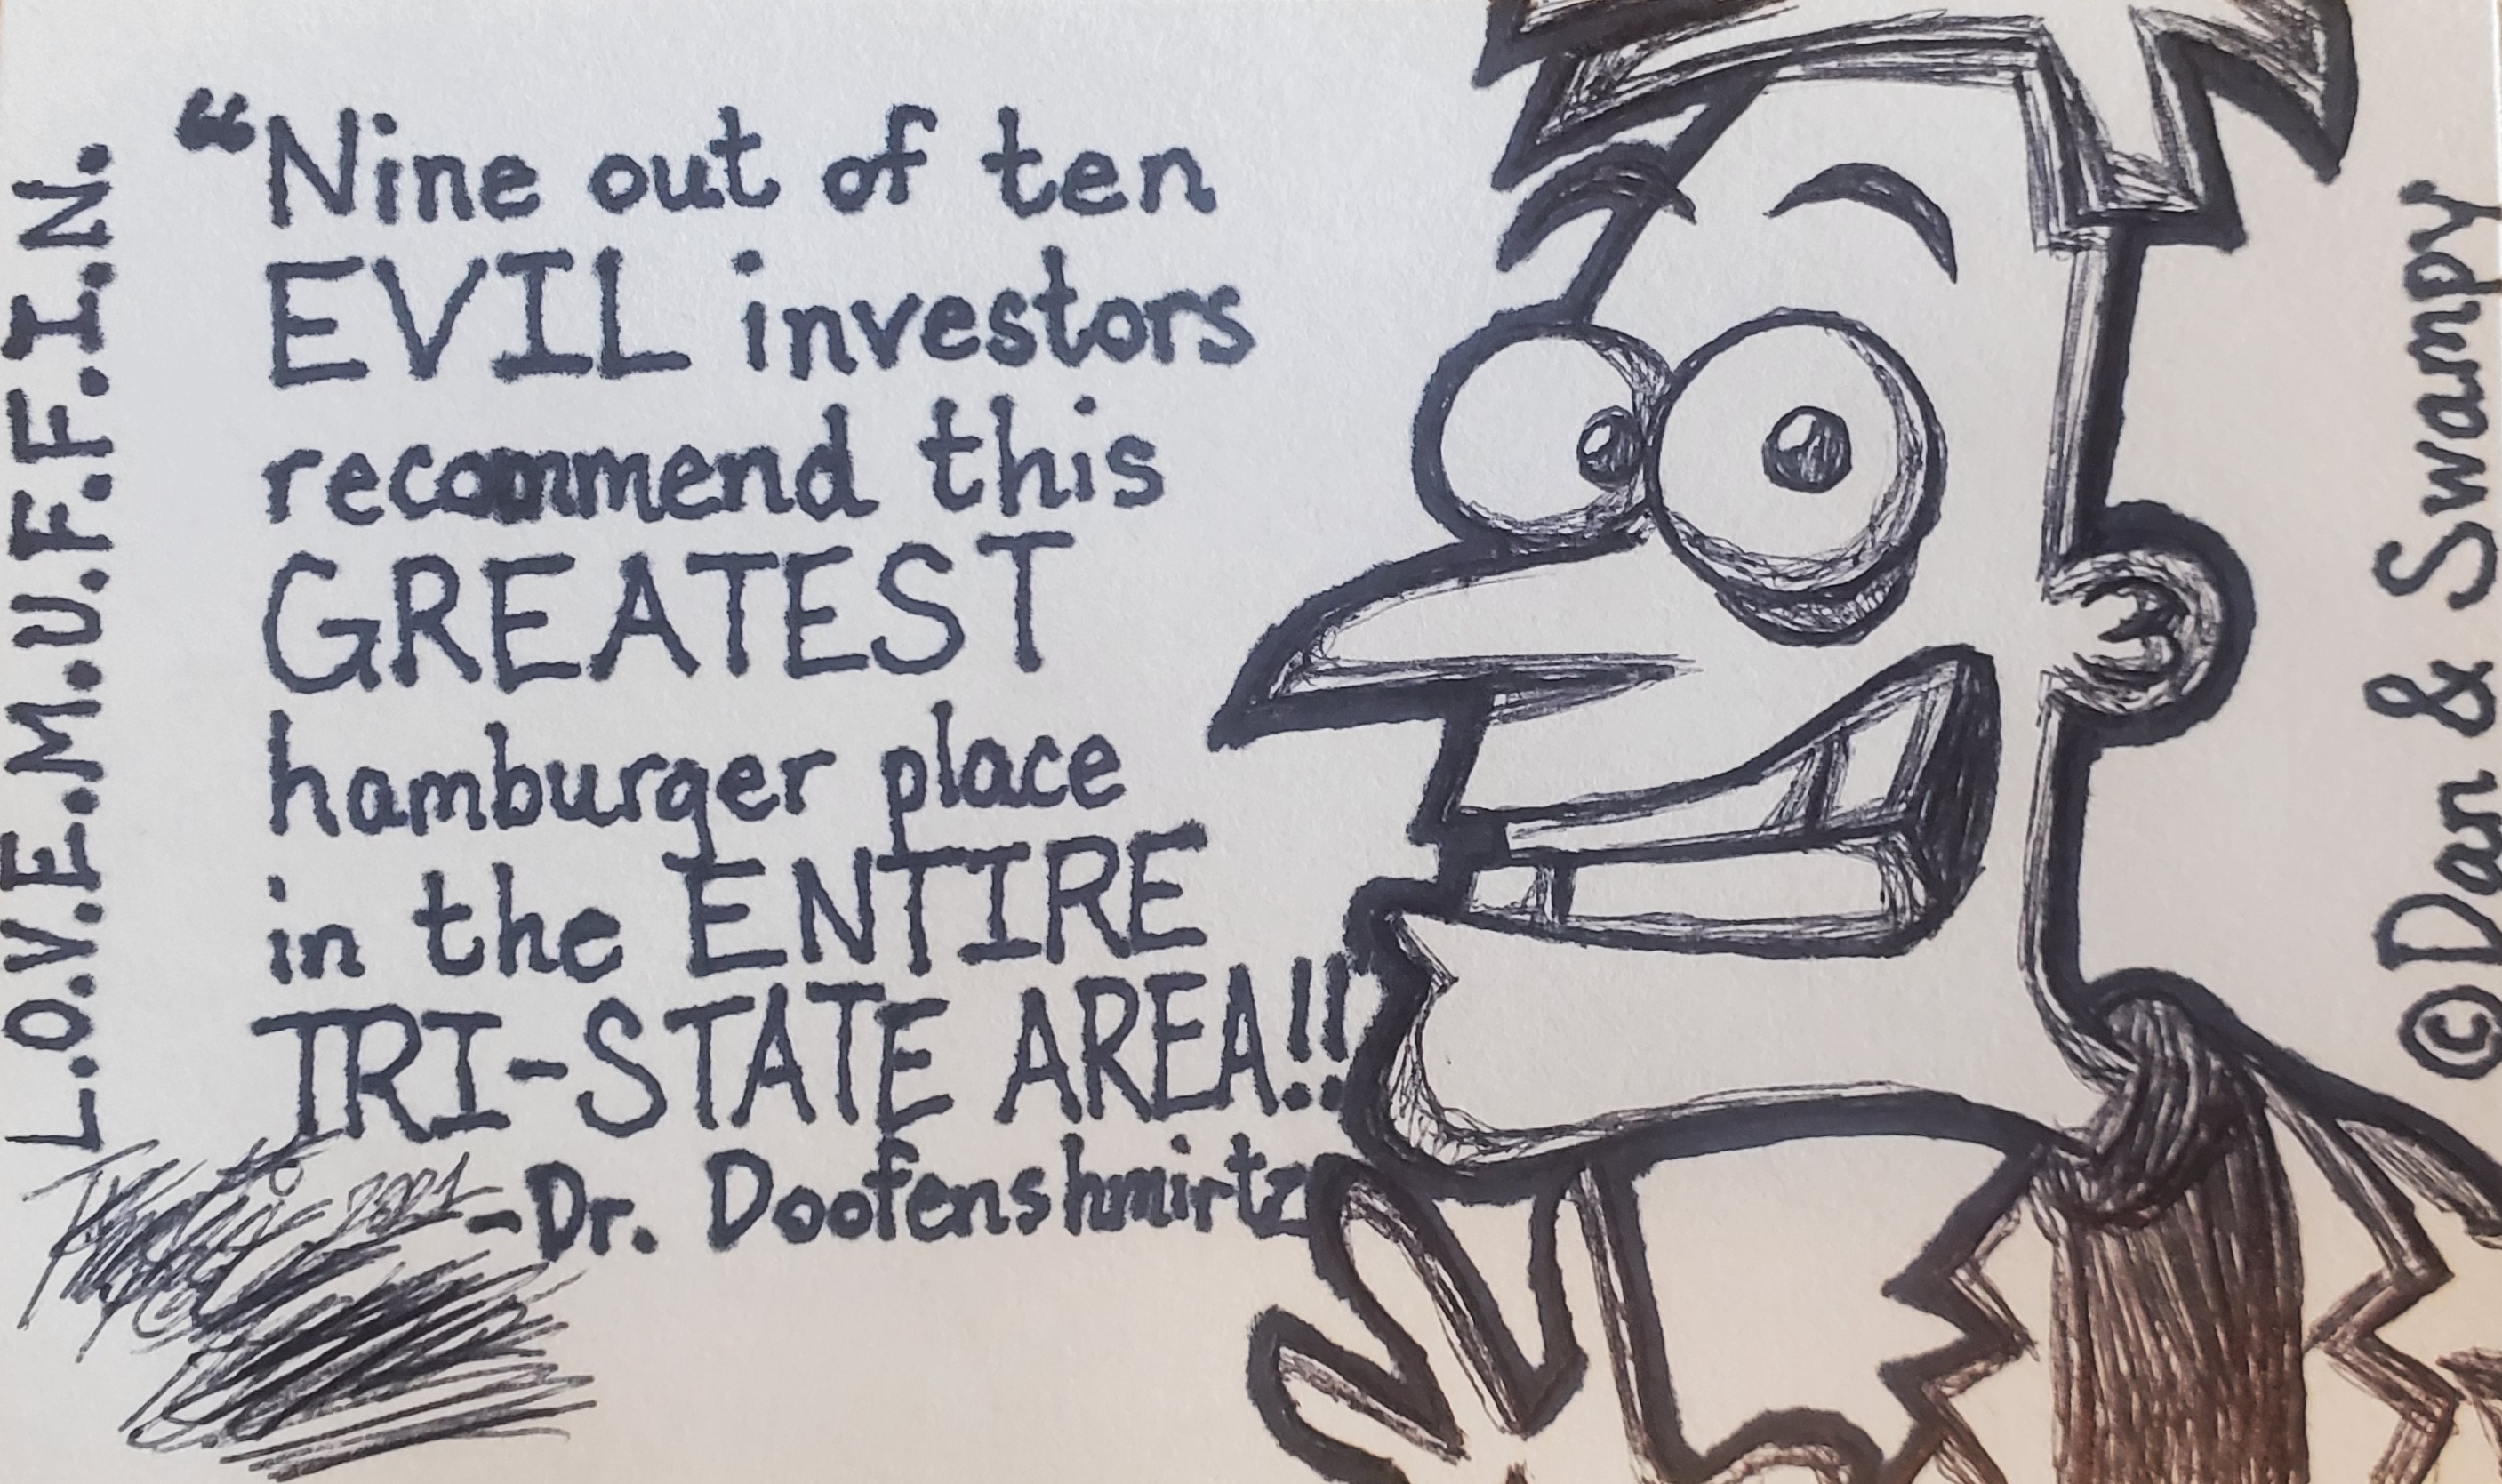 L.O.V.E.M.U.F.F.I.N.
“Nine out of ten
EVIL investors
recommend this
GREATEST
hamburger place
in the ENTIRE
TRI-STATE AREA!!
-Dr. Doofenshmirtz
2021
©Dan & Swampy